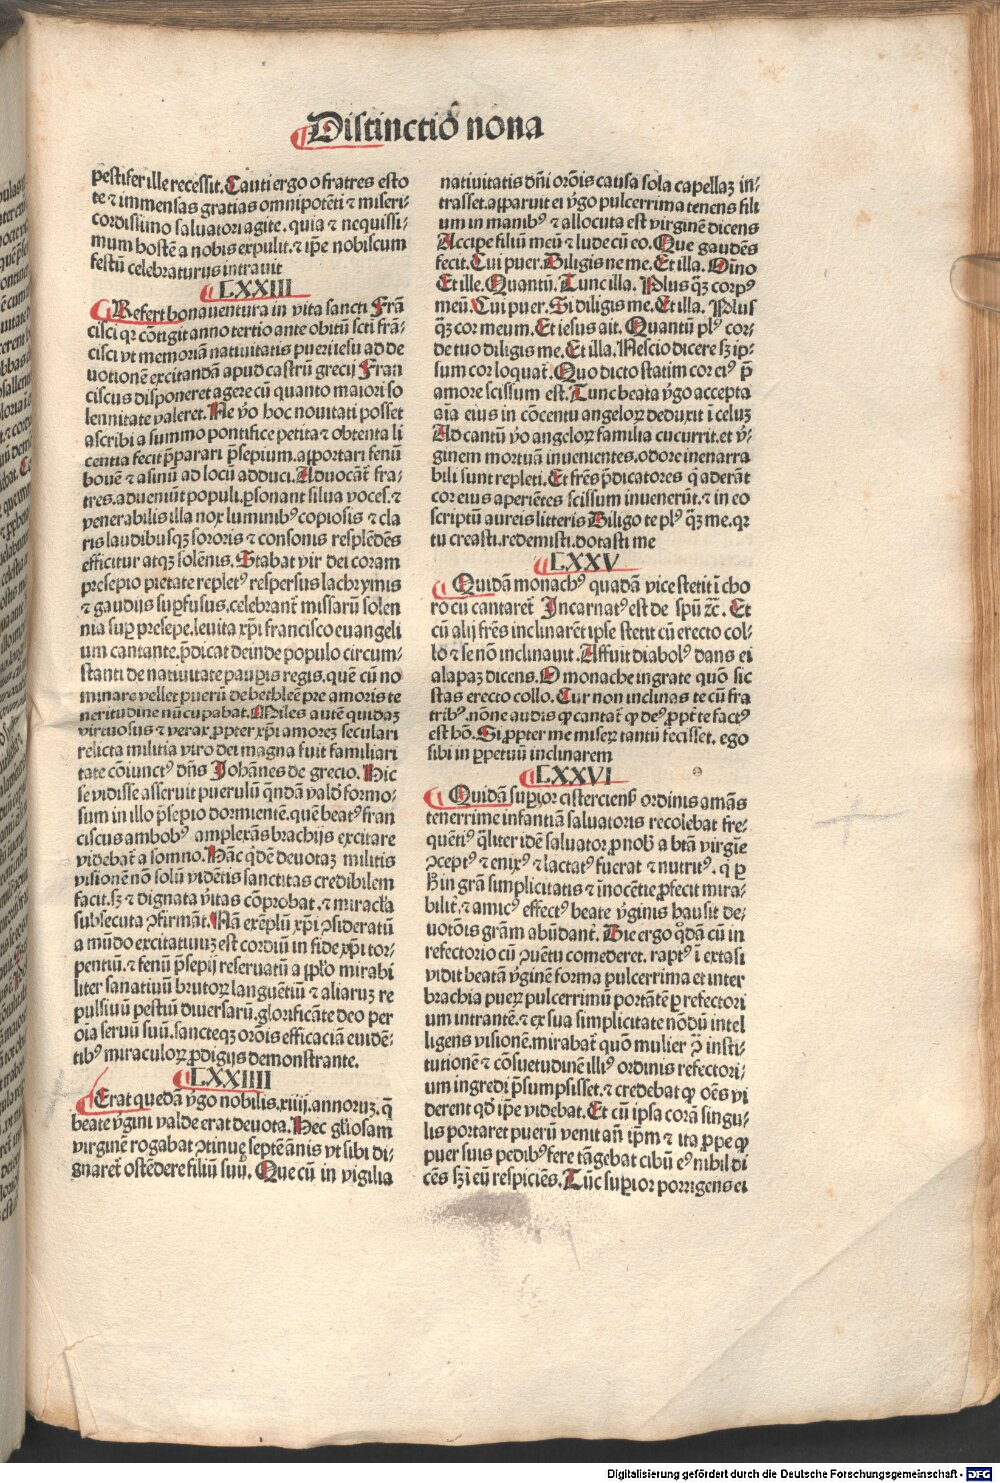 Distinctiō nona
pestifer ille recessit. Cauti ergo o fratres esto
te ⁊ immensas gratias omnipotēti ⁊ miseri-
cordissimo saluatori agite. quia ⁊ nequissi-
mum hostē a nobis expulit. ⁊ ip̄e nobiscum
festū celebraturus intrauit
LXXIII
Refert bonauentura in vita sancti Frā
cisci qr cōtigit anno tertio ante obitū scti frā-
cisci vt memoriā natiuitatis pueri iesu ad de
uotionē excitandā apud castrū grecij Fran
ciscus disponeret agere cū quanto maiori so
lennitate valeret. Ne ṽo hoc nouitati posset
ascribi a summo pontifice petita ⁊ obtenta li
centia fecit p̄parari p̄sepium. apportari fenū
bouē ⁊ asinū ad locū adduci. Aduocāt̄ fra-
tres. adueniūt populi. ꝑsonant silua voces. ⁊
venerabilis illa nox luminibꝰ copiosis ⁊ cla
ris laudibusqꝫ sonoris ⁊ consonis resplēdēs
efficitur atqꝫ solēnis. Stabat vir dei coram
presepio pietate repletꝰ respersus lachrymis
⁊ gaudijs suꝑfusus. celebrant̄ missarū solen
nia suꝑ presepe. leuita xp̄i francisco euangeli
um cantante. p̄dicat deinde populo circum-
stanti de natiuitate pauꝑis regis. quē cū no
minare vellet puerū de bethleē pre amoris te
neritudine nūcupabat. Miles autē quidaꝫ
virtuosus ⁊ verax. ꝓpter xp̄i amoreꝫ seculari
relicta militia viro dei magna fuit familiari
tate cōiunctꝰ dn̄s Johānes de grecio. Hic
se vidisse asseruit puerulū qndā vald̄ formo-
sum in illo p̄sepio dormientē. quē beatꝰ fran
ciscus ambobꝰ amplexās brachijs excitare
videbat̄ a somno. Hāc qͥdē deuotaꝫ militis
visionē nō solū vidētis sanctitas credibilem
facit. sꝫ ⁊ dignata v̄itas cōprobat. ⁊ miracl̄a
subsecuta ꝯfirmāt. Nā exēplū xp̄i ꝯsideratū
a mūdo excitatiuuꝫ est cordiū in fide xp̄i tor-
pentiū. ⁊ fenū p̄sepij reseruatū a pp̄lo mirabi
liter sanatiuū brutoꝝ languētiū ⁊ aliaruꝫ re
pulsiuū pestiū diuersarū. glorificāte deo per
oīa seruū suū. sancteqꝫ orōnis efficaciā euidē-
tibꝰ miraculoꝝ ꝓdigijs demonstrante.
LXXIIII
Erat quedā v̄go nobilis. xiiij. annoruꝫ. q̄
beate v̄gini valde erat deuota. Hec gl̄iosam
virginē rogabat ꝯtinue septē ānis vt sibi di-
gnaret̄ ostēdere filiū suū. Que cū in vigilia
natiuitatis dn̄i orōnis causa sola capellaꝫ in-
trasset. apparuit ei v̄go pulcerrima tenens fili
um in manibꝰ ⁊ allocuta est virginē dicens
Accipe filiū meū ⁊ lude cū eo. Que gaudēs
fecit. Cui puer. Diligis ne me. Et illa. Dn̄o
Et ille. Quantū. Tunc illa. Plus qꝫ corpꝰ
meū. Cui puer. Si diligis me. Et illa. Plus
qꝫ cor meum. Et iesus ait. Quantū plꝰ cor-
de tuo diligis me. Et illa. Nescio dicere sꝫ ip-
sum cor loquat̄. Quo dicto statim cor eiꝰ p̄
amore scissum est. Tunc beata v̄go accepta
aīa eius in cōcentu angeloꝝ deduxit ī celuꝫ
Ad cantū ṽo angeloꝝ familia cucurrit. et v̄-
ginem mortuā inuenientes. odore inenarra
bili sunt repleti. Et frēs p̄dicatores q̄ aderāt
cor eius aperiētes scissum inuenerūt. ⁊ in eo
scriptū aureis litteris Diligo te plꝰ qꝫ me. qr
tu creasti. redemisti. dotasti me
LXXV
Quidā monachꝰ quadā vice stetit ī cho
ro cū cantaret̄ Incarnatꝰ est de spū ⁊c̄. Et
cū alij frēs inclinarēt ipse stetit cū erecto col-
lo ⁊ se nō inclinauit. Affuit diabolꝰ dans ei
alapaꝫ dicens. O monache ingrate quō sic
stas erecto collo. Cur non inclinas te cū fra
tribꝰ. nōne audis ꝙ cantat̄ ꝙ deꝰ ꝓpt̄ te factꝰ
est hō. Si ꝓpter me miseꝝ tantū fecisset. ego
sibi in ꝑpetuū inclinarem
LXXVI
Quidā suꝑior cisterciens̄ ordinis amās
tenerrime infantiā saluatoris recolebat fre-
quētiꝰ qͣliter idē saluator. ꝓ nob̄ a btā virgīe
ꝯceptꝰ ⁊ enixꝰ ⁊ lactatꝰ fuerat ⁊ nutritꝰ. qͥ ꝑ
h̄ in grā simplicitatis ⁊ inocētie ꝓfecit mira-
bilit̄. ⁊ amicꝰ effectꝰ beate v̄ginis hausit de-
uotōis grām abūdant̄. Die ergo qͣdā cū in
refectorio cū ꝯuētu comederet. raptꝰ ī extasi
vidit beatā v̄ginē forma pulcerrima et inter
brachia pueꝝ pulcerrimū portātē ꝑ refectori
um intrantē. ⁊ ex sua simplicitate nōdū intel
ligens visionē. mirabat̄ quō mulier ꝯ̄ insti-
tutionē ⁊ cōsuetudinē illiꝰ ordinis refectori-
um ingredi p̄sumpsisset. ⁊ credebat ꝙ oēs vi
derent qd̄ ip̄e videbat. Et cū ipsa corā singu-
lis portaret puerū venit añ ip̄m ⁊ ita ꝓpe ꝙ
puer suis pedibꝰ fere tāgebat cibū eꝰ nihil di
cēs sꝫ ī eū respiciēs. Tūc suꝑior porrigens ei
Digitalisierung gefördert durch die Deutsche Forschungsgemeinschaft - DFG